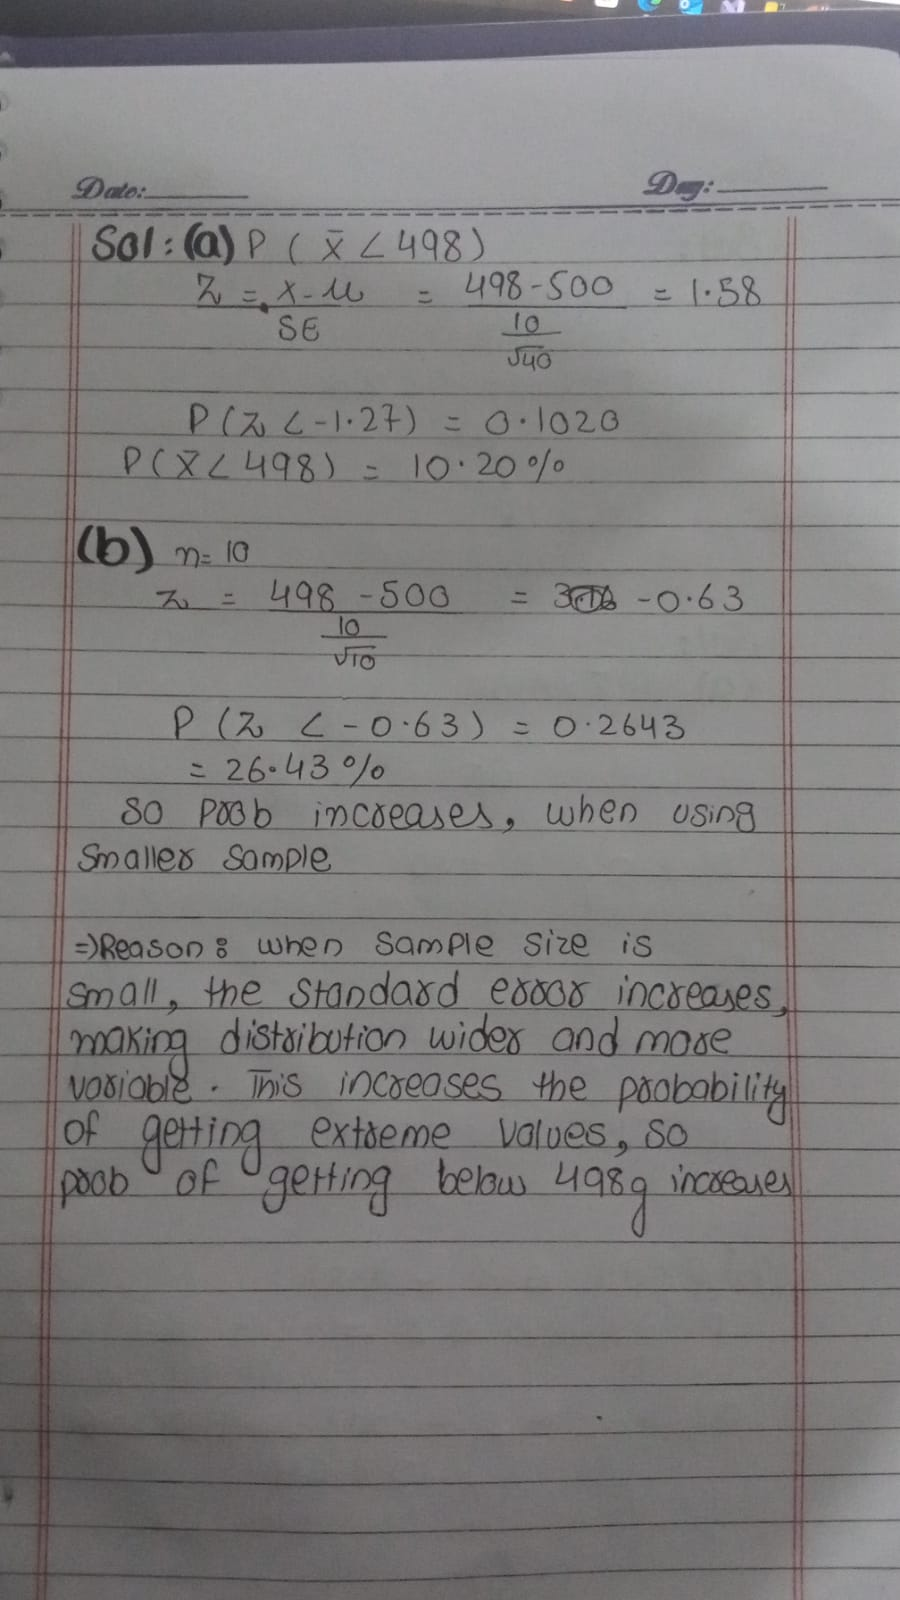 Date:
Day:
Sol: (a) P ( x̄ < 498)
Z = x-μ / SE = 498-500 / (10 / √40) = 1.58
P(Z < -1.27) = 0.1020
P(x̄ < 498) = 10.20%
(b) n= 10
Z = 498 -500 / (10 / √10) = -0.63
P (Z < -0.63) = 0.2643
= 26.43%
SO Prob increases, when using
Smaller Sample
=)Reason : when Sample Size is
Small, the Standard error increases,
making distribution wider and more
variable. This increases the probability
of getting extreme values, so
prob of getting below 498g increases